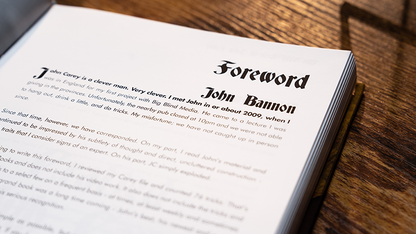 Foreword
John Bannon
John Carey is a clever man. Very clever. I met John in or about 2009, when I
was in England for my first project with Big Blind Media. He came to a lecture I was
giving in the provinces. Unfortunately, the nearby pub closed at 10pm and we were not able
to hang out, drink a little, and do tricks. My misfortune; we have not caught up in person
since.
Since that time, however, we have corresponded. On my part, I read John's material and
continued to be impressed by his subtlety of thought and direct, uncluttered construction
traits that I consider signs of an expert. On his part, JC simply exploded.
to write this foreword, I reviewed my Carey file and counted 76 tricks. That's
books and does not include his video work. It also does not include the tricks
to a select few on a frequent basis - at times, at least weekly and sometimes
serious recognition.
book was a long time coming
as possible, but